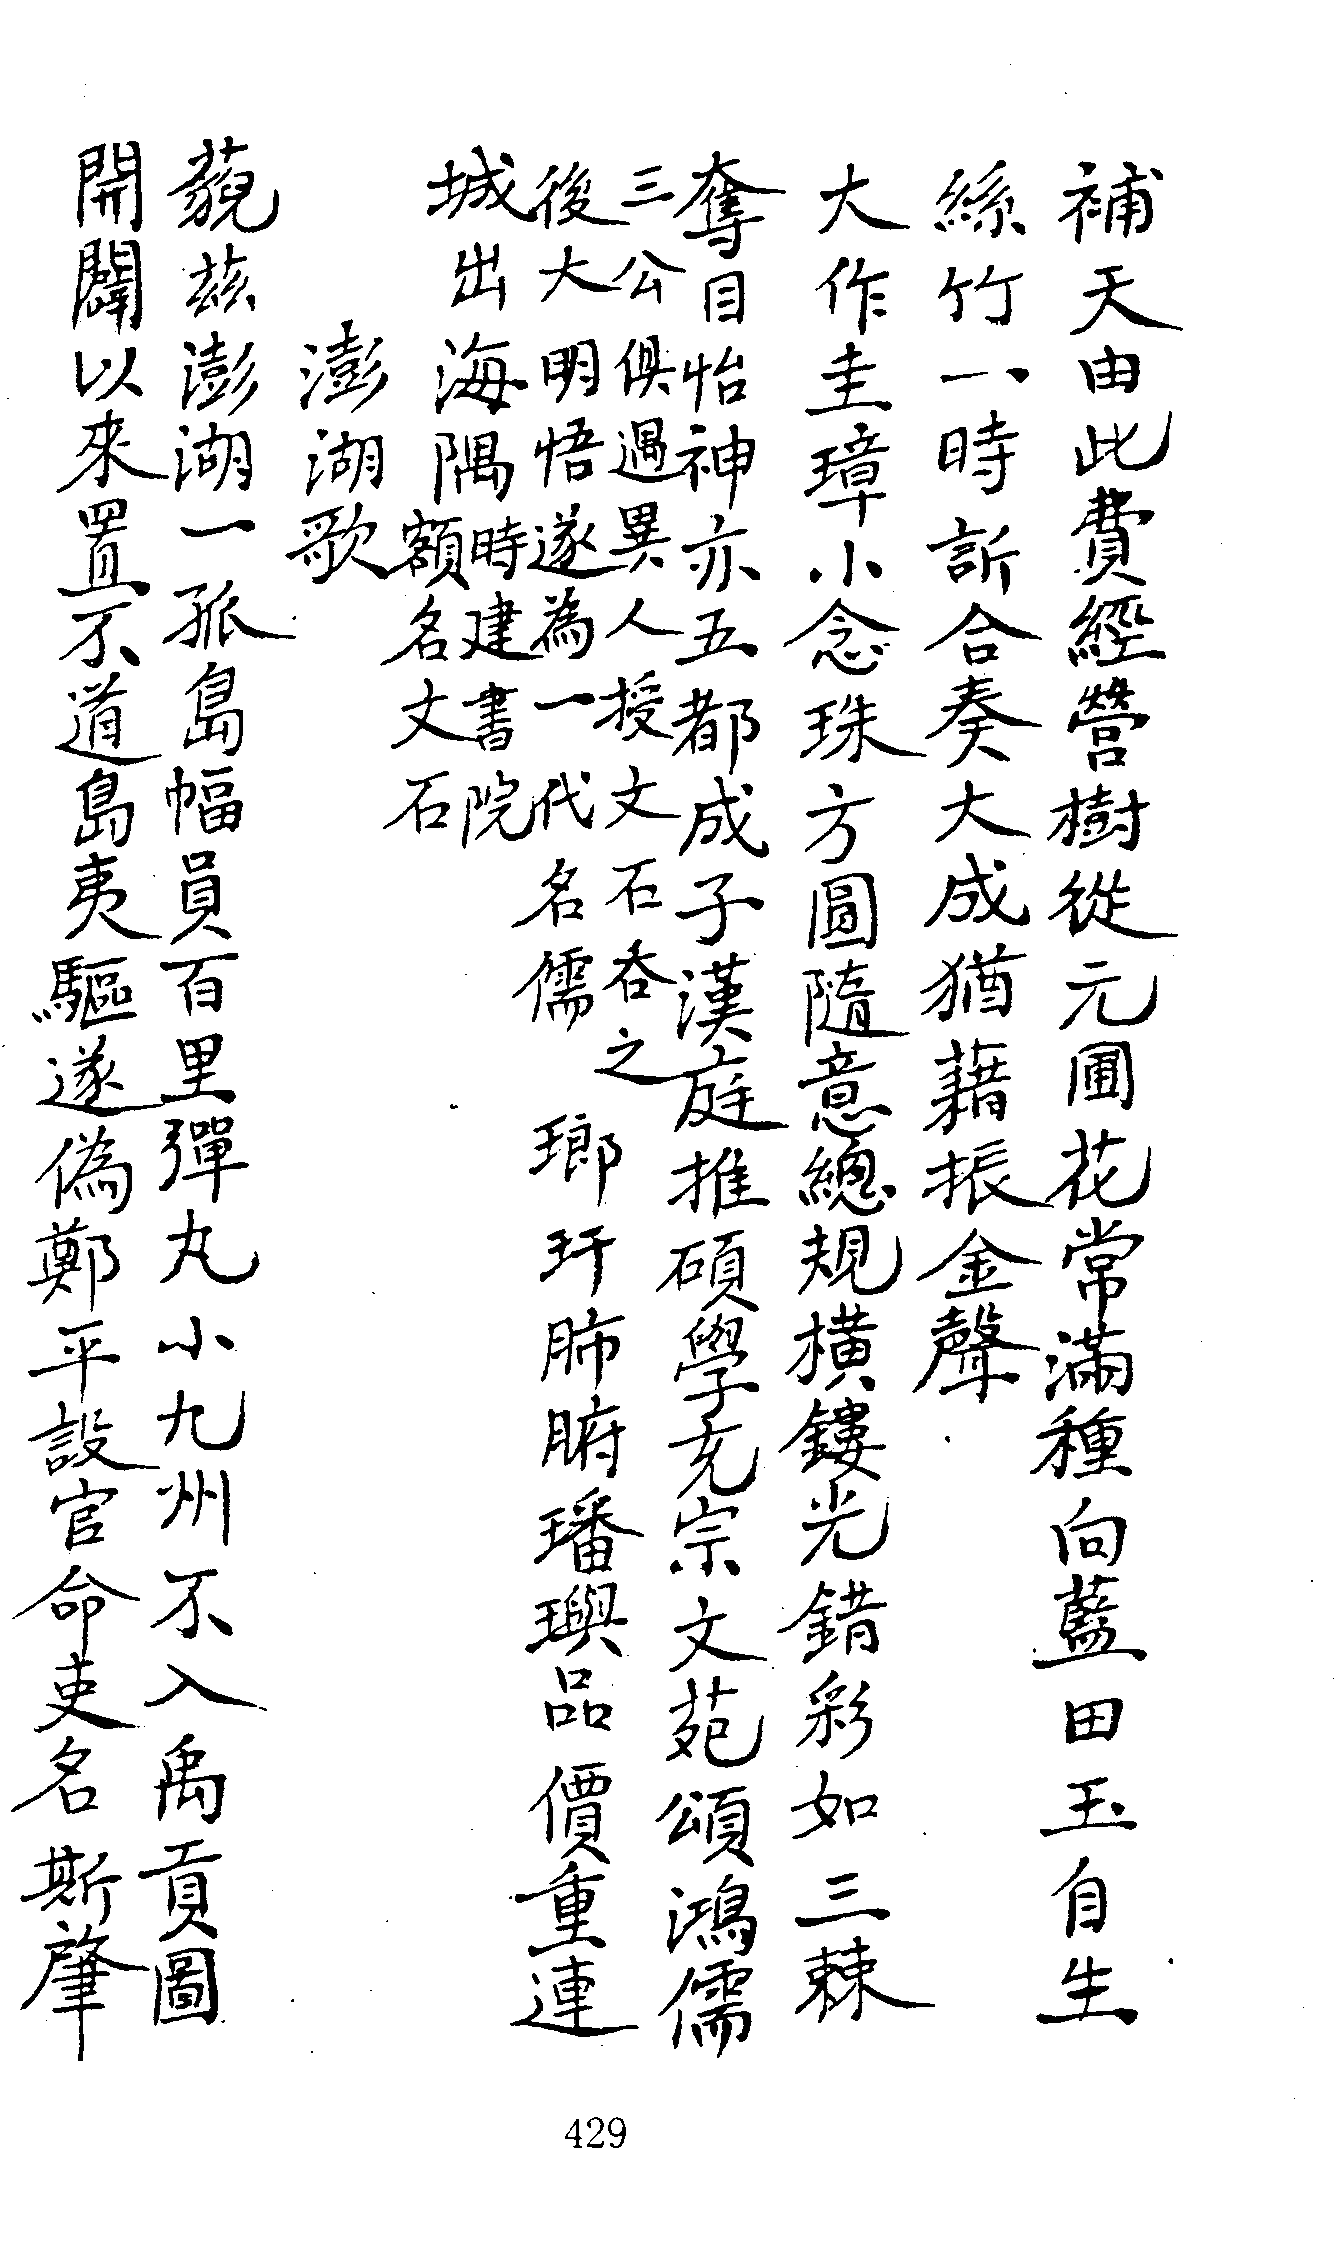 補天由此費經營樹從元圃花常滿種向藍田玉自生
絲竹一時訢合奏大成猶藉振金聲
大作圭璋小念珠方圓隨意總規橫鏤光錯彩如三棘
奪目怡神亦五都成子漢庭推碩學充宗文苑頌鴻儒
三公俱遇異人授文石吞之
後大明悟遂為一代名儒
瑯玕肺腑璠璵品價重連
城出海隅
時建書院
額名文石
澎湖歌
藐茲澎湖一孤島幅員百里彈丸小九州不入禹貢圖
開闢以來置不道島夷驅遂偽鄭平設官命吏名斯肇
429